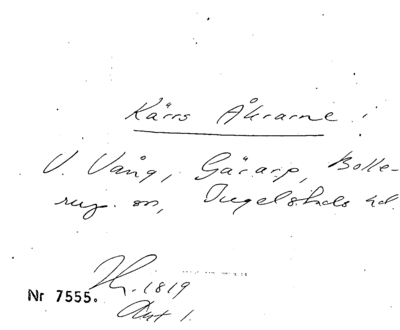 Kärrs Åkrarne i
V. Vång, Gärarp, Bolle-
rup sn, Ingelstads hd.
1819
Nr 7555.
Akt 1.